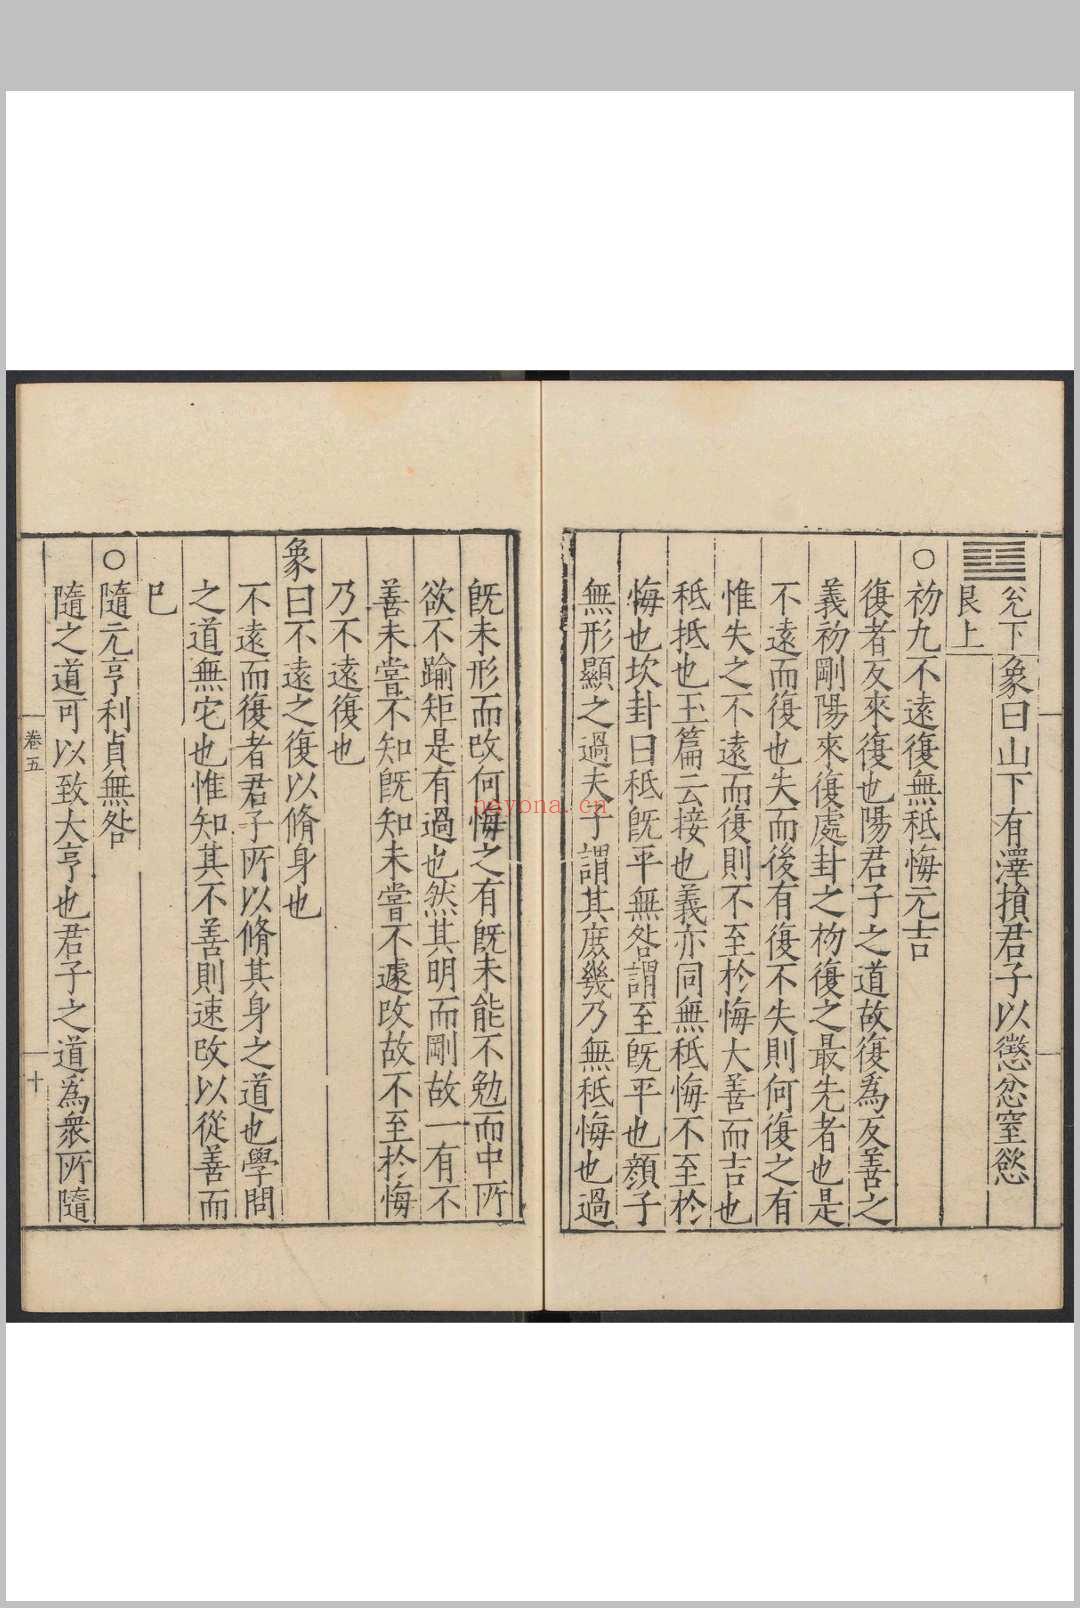 兊下
艮上
象曰山下有澤損君子以懲忿窒慾
○初九不遠復無秪悔元吉
復者反來復也陽君子之道故復爲反善之
義初剛陽來復處卦之初復之最先者也是
不遠而復也失而後有復不失則何復之有
惟失之不遠而復則不至於悔大善而吉也
秪抵也玉篇云接也義亦同無秪悔不至於
悔也坎卦曰秪旣平無咎謂至旣平也顏子
無形顯之過夫子謂其庶幾乃無秪悔也過
旣未形而改何悔之有旣未能不勉而中所
欲不踰矩是有過也然其明而剛故一有不
善未嘗不知旣知未嘗不遽改故不至於悔
乃不遠復也
象曰不遠之復以脩身也
不遠而復者君子所以脩其身之道也學問
之道無它也惟知其不善則速改以從善而
已
○隨元亨利貞無咎
隨之道可以致大亨也君子之道爲衆所隨
卷五
十
payona.cn